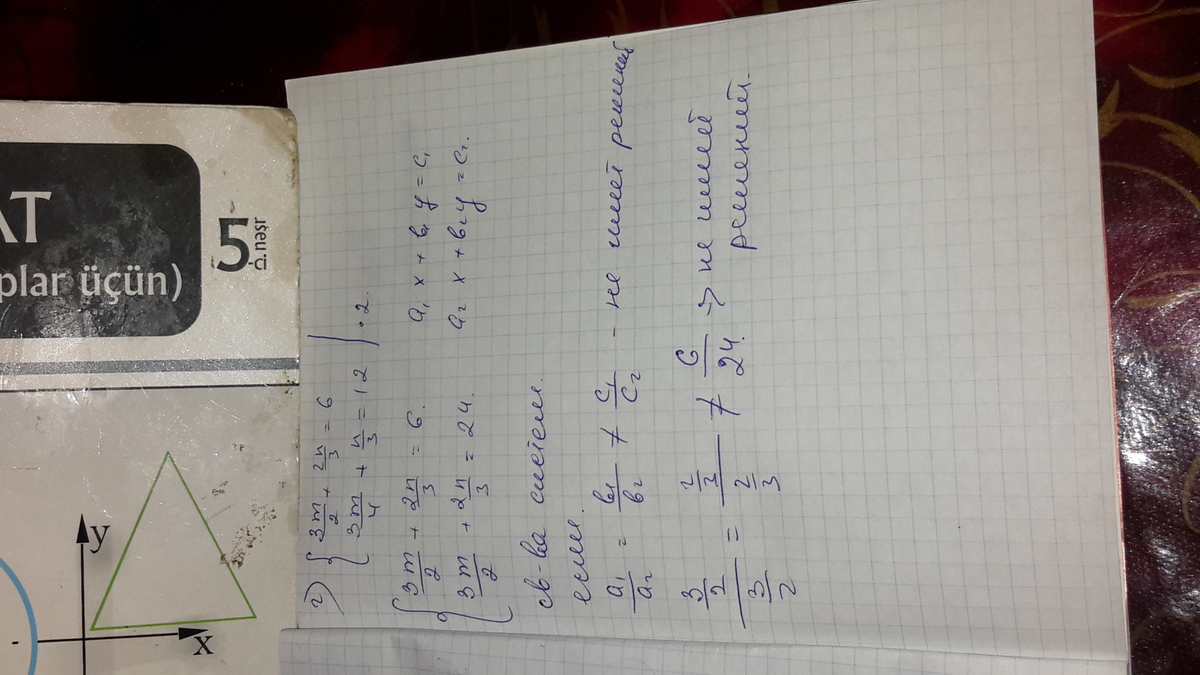 AT
plar üçün)
5
ci nəşr
y
x
г) { 3m/2 + 2n/3 = 6
3m/4 + n/3 = 12 | · 2.
{ 3m/2 + 2n/3 = 6. a₁ x + в₁ y = c₁
3m/2 + 2n/3 = 24. a₂ x + в₂ y = c₂.
св-ва систем.
если.
a₁/a₂ = в₁/в₂ ≠ c₁/c₂ - не имеет решений
3/2 / 3/2 = 2/3 / 2/3 ≠ 6/24. => не имеет
решений.